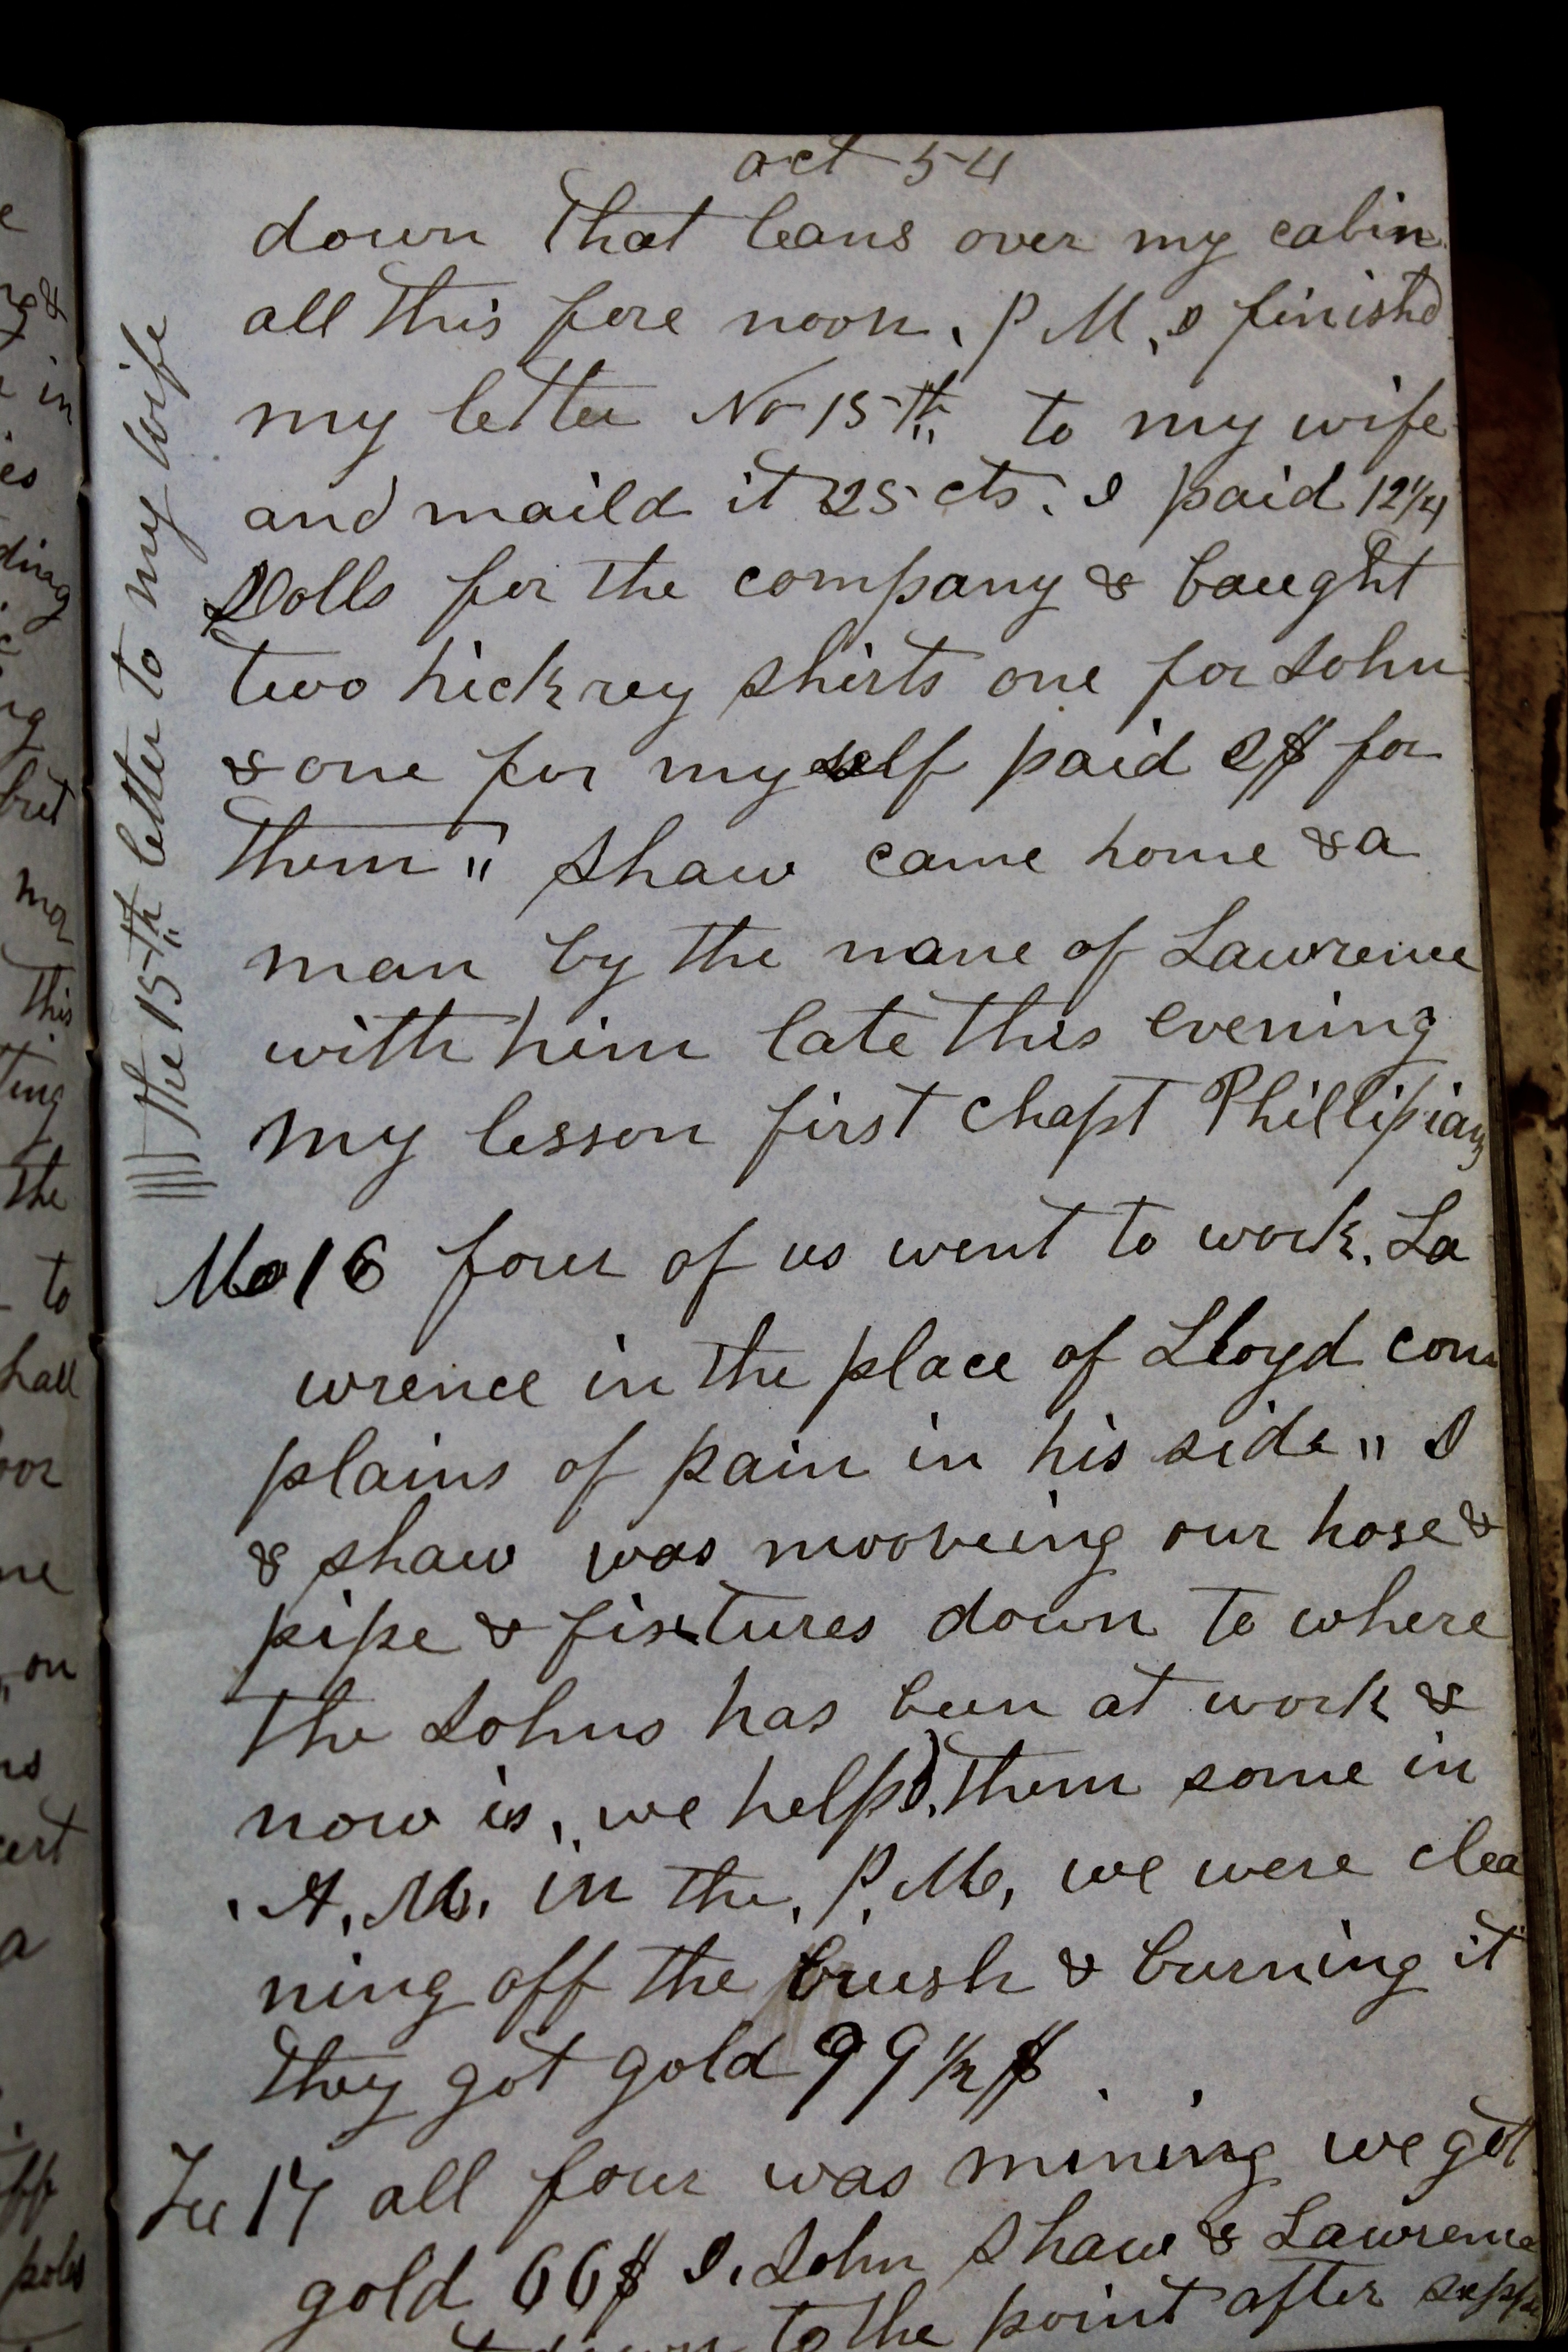 oct 54
down that leans over my cabin
all this fore noon, P M, I finishd
my letter No 15th to my wife
and maild it 25 cts. I paid 12 1/4
Dolls for the company & baught
two hickrey shirts one for John
& one for myself paid 2$ for
them " Shaw came home & a
man by the name of Lawrence
with him late this evening
my lesson first chapt Phillipians
Mo 16 four of us went to work. La
wrence in the place of Lloyd com
plains of pain in his side " I
& Shaw was mooveing our hose &
pipe & fixtures down to where
the Johns has been at work &
now is, we helpd, them some in
A, M, in the, P, M, we were clea
ning off the brush & burning it
they got gold 99 1/2 $
Tu 17 all four was mining we got
gold 66$ I, John Shaw & Lawrence
down to the point after
the 15th letter to my wife
e
in
es
ding
ng
but
this
ting
the
to
hall
ne
on
a
poles